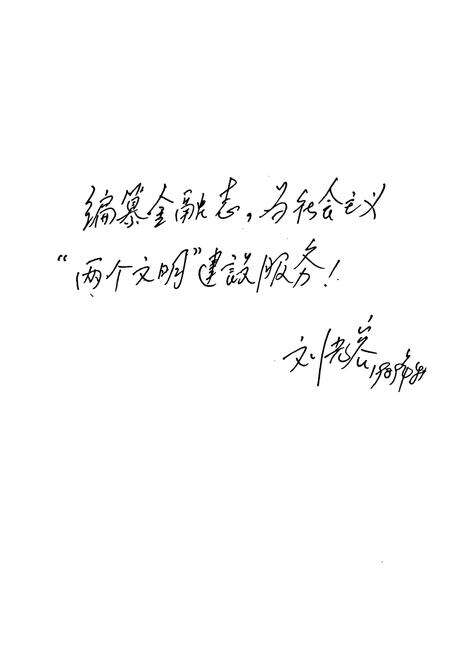 编纂金融志，为社会主义
“两个文明”建設服务！
刘 1989年